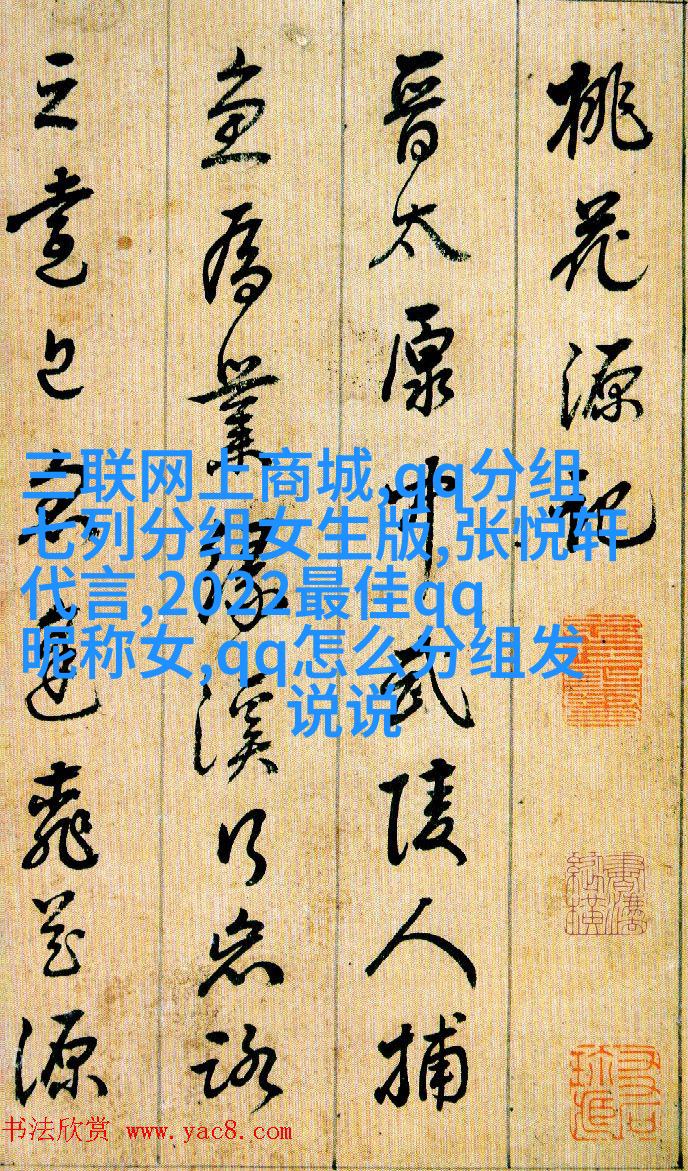 桃花源記
晉太原中武陵人捕
魚為業緣溪行忘路
之
源
三联网上商城,qq分组
七列分组女生版,张悦轩
代言,2022最佳qq
昵称女,qq怎么分组发
说说
书法欣赏 www.yac8.com